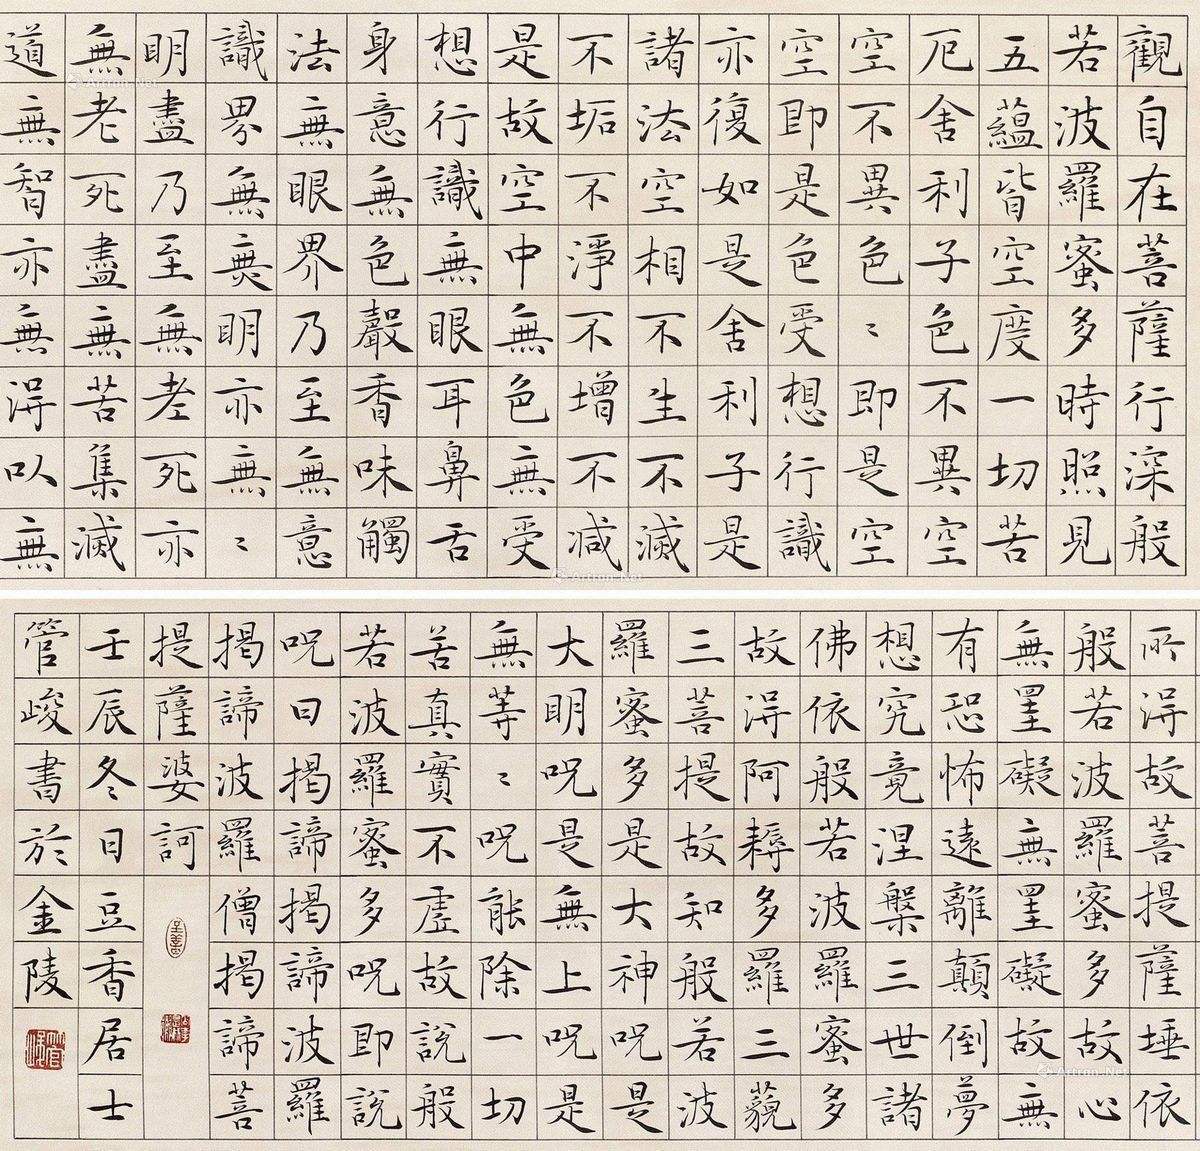 觀自在菩薩行深般
若波羅蜜多時照見
五蘊皆空度一切苦
厄舍利子色不異空
空不異色〻即是空
空即是色受想行識
亦復如是舍利子是
諸法空相不生不滅
不垢不淨不增不減
是故空中無色無受
想行識無眼耳鼻舌
身意無色聲香味觸
法無眼界乃至無意
識界無無明亦無〻
明盡乃至無老死亦
無老死盡無苦集滅
道無智亦無得以無
所得故菩提薩埵依
般若波羅蜜多故心
無罣礙無罣礙故無
有恐怖遠離顛倒夢
想究竟涅槃三世諸
佛依般若波羅蜜多
故得阿耨多羅三藐
三菩提故知般若波
羅蜜多是大神呪是
大明呪是無上呪是
無等〻呪能除一切
苦真實不虛故說般
若波羅蜜多呪即說
呪曰揭諦揭諦波羅
揭諦波羅僧揭諦菩
提薩婆訶
壬辰冬日豆香居士
管峻書於金陵
Artron.Net
Artron.Net
Artron.Net